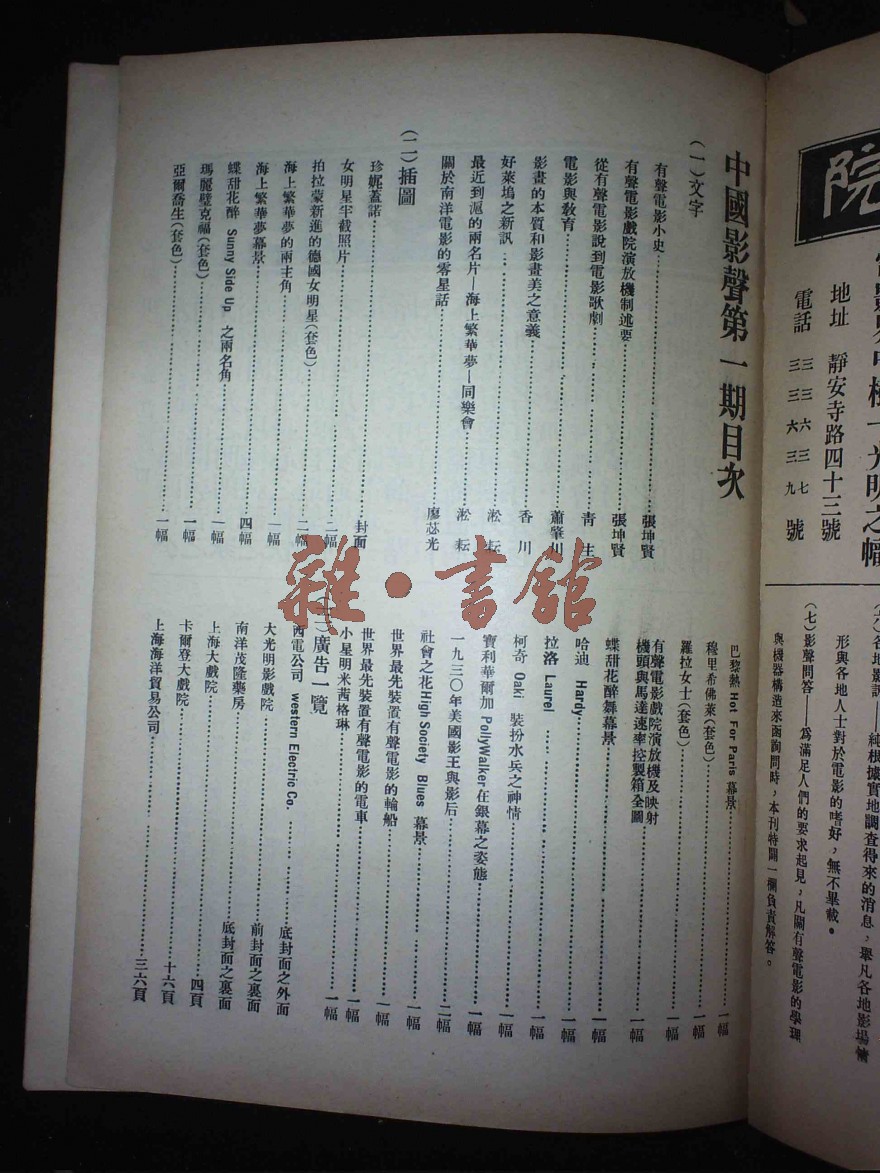 院
地址 靜安寺路四十三號
電話 三三六三七
三三六三九 號
形與各地人士對於電影的嗜好，無不畢載。
（七）影聲問答——爲滿足人們的要求起見，凡關有聲電影的學理
與機器構造來函詢問時，本刊特闢一欄負責解答。
中國影聲第一期目次
（一）文字
有聲電影小史 張坤賢
有聲電影戲院演放機制述要 張坤賢
從有聲電影說到電影歌劇 青生
電影與敎育 蕭肇川
影畫的本質和影畫美之意義 香川
好萊塢之新訊 淞耘
最近到滬的兩名片—海上繁華夢—同樂會 淞耘
關於南洋電影的零星話 廖苾光
（二）插圖
珍妮蓋諾 封面
女明星半截照片 二幅
拍拉蒙新進的德國女明星（套色） 二幅
海上繁華夢的兩主角 一幅
海上繁華夢幕景 四幅
蝶甜花醉 Sunny Side Up 之兩名角 一幅
瑪麗璧克福（套色） 一幅
亞爾喬生（套色） 一幅
巴黎熱 Hot For Paris 幕景 一幅
穆里希佛萊（套色） 一幅
羅拉女士（套色） 一幅
有聲電影戲院演放機及映射
機頭與馬達速率控製箱全圖 一幅
蝶甜花醉舞幕景 一幅
哈迪 Hardy 一幅
拉洛 Laurel 一幅
柯奇 Oaki 裝扮水兵之神情 一幅
寶利華爾加 PollyWalker 在銀幕之姿態 一幅
一九三〇年美國影王與影后 二幅
社會之花 High Society Blues 幕景 一幅
世界最先裝置有聲電影的輪船 一幅
世界最先裝置有聲電影的電車 一幅
小星明米茜格琳 一幅
（三）廣告一覽
西電公司 western Electric Co. 底封面之外面
大光明影戲院 前封面之裏面
南洋茂隆藥房 底封面之裏面
上海大戲院 四頁
卡爾登大戲院 十六頁
上海海洋貿易公司 三六頁
雜·書館